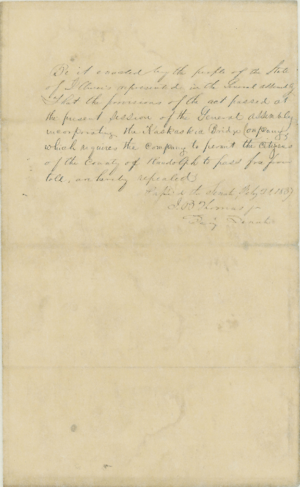 Be it enacted by the people of the State
of Illinois represented in the General Assembly
That the provisions of the act passed at
the present Session of the General Assembly
incorporating the Kaskaskia Bridge Company
which requires the Company to permit the Citizens
of the County of Randolph to pass free from
toll, are hereby repealed
Senate Feby 1837
J B Thomas jr